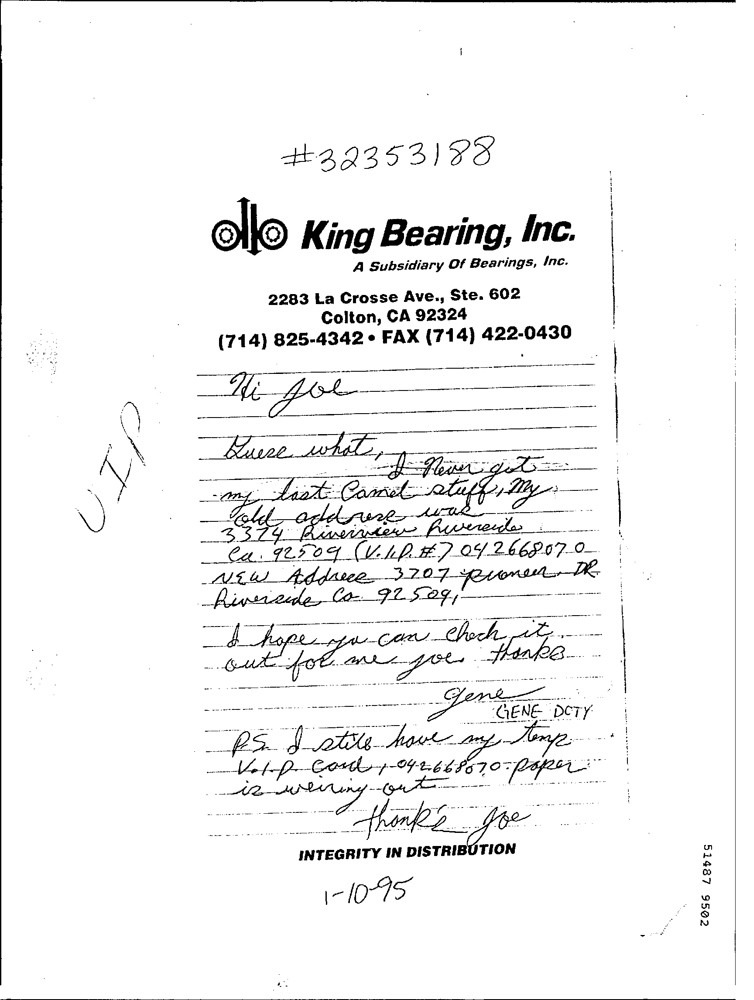 #32353188
King Bearing, Inc.
A Subsidiary Of Bearings, Inc.
2283 La Crosse Ave., Ste. 602
Colton, CA 92324
(714) 825-4342 • FAX (714) 422-0430
Hi Joe
Guese what,
I Never got
my last Camel stuff, My
old addrese was
3374 Riverview Riverside
Ca. 92509 (V.I.P. #) 042668070
NEW Addrece 3707 pioneer DR
Riverside, Ca. 92509,
I hope you can check it
out for me Joe, thanks
Gene
GENE DOTY
P.S. I still have my temp
V.I.P. Card, 042668070-paper
is weiring out
thank's Joe
INTEGRITY IN DISTRIBUTION
1-10-95
VIP
51487 9502